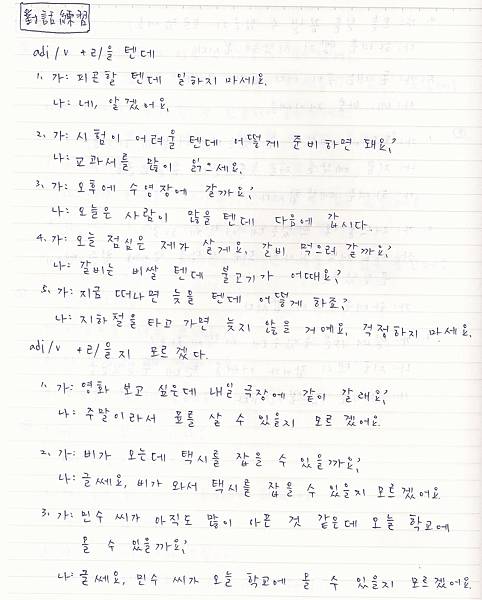 對話練習
adj/v + ㄹ/을 텐데
1. 가: 피곤할 텐데 일하지 마세요.
나: 네, 알겠어요.
2. 가: 시험이 어려울 텐데 어떻게 준비하면 돼요?
나: 교과서를 많이 읽으세요.
3. 가: 오후에 수영장에 갈까요?
나: 오늘은 사람이 많을 텐데 다음에 갑시다.
4. 가: 오늘 점심은 제가 살게요. 갈비 먹으러 갈까요?
나: 갈비는 비쌀 텐데 불고기가 어때요?
5. 가: 지금 떠나면 늦을 텐데 어떻게 하죠?
나: 지하철을 타고 가면 늦지 않을 거예요. 걱정하지 마세요.
adj/v + ㄹ/을지 모르겠다.
1. 가: 영화 보고 싶은데 내일 극장에 같이 갈래요?
나: 주말이라서 표를 살 수 있을지 모르겠어요.
2. 가: 비가 오는데 택시를 잡을 수 있을까요?
나: 글쎄요, 비가 와서 택시를 잡을 수 있을지 모르겠어요
3. 가: 민수 씨가 아직도 많이 아픈 것 같은데 오늘 학교에
올 수 있을까요?
나: 글쎄요, 민수 씨가 오늘 학교에 올 수 있을지 모르겠어요.